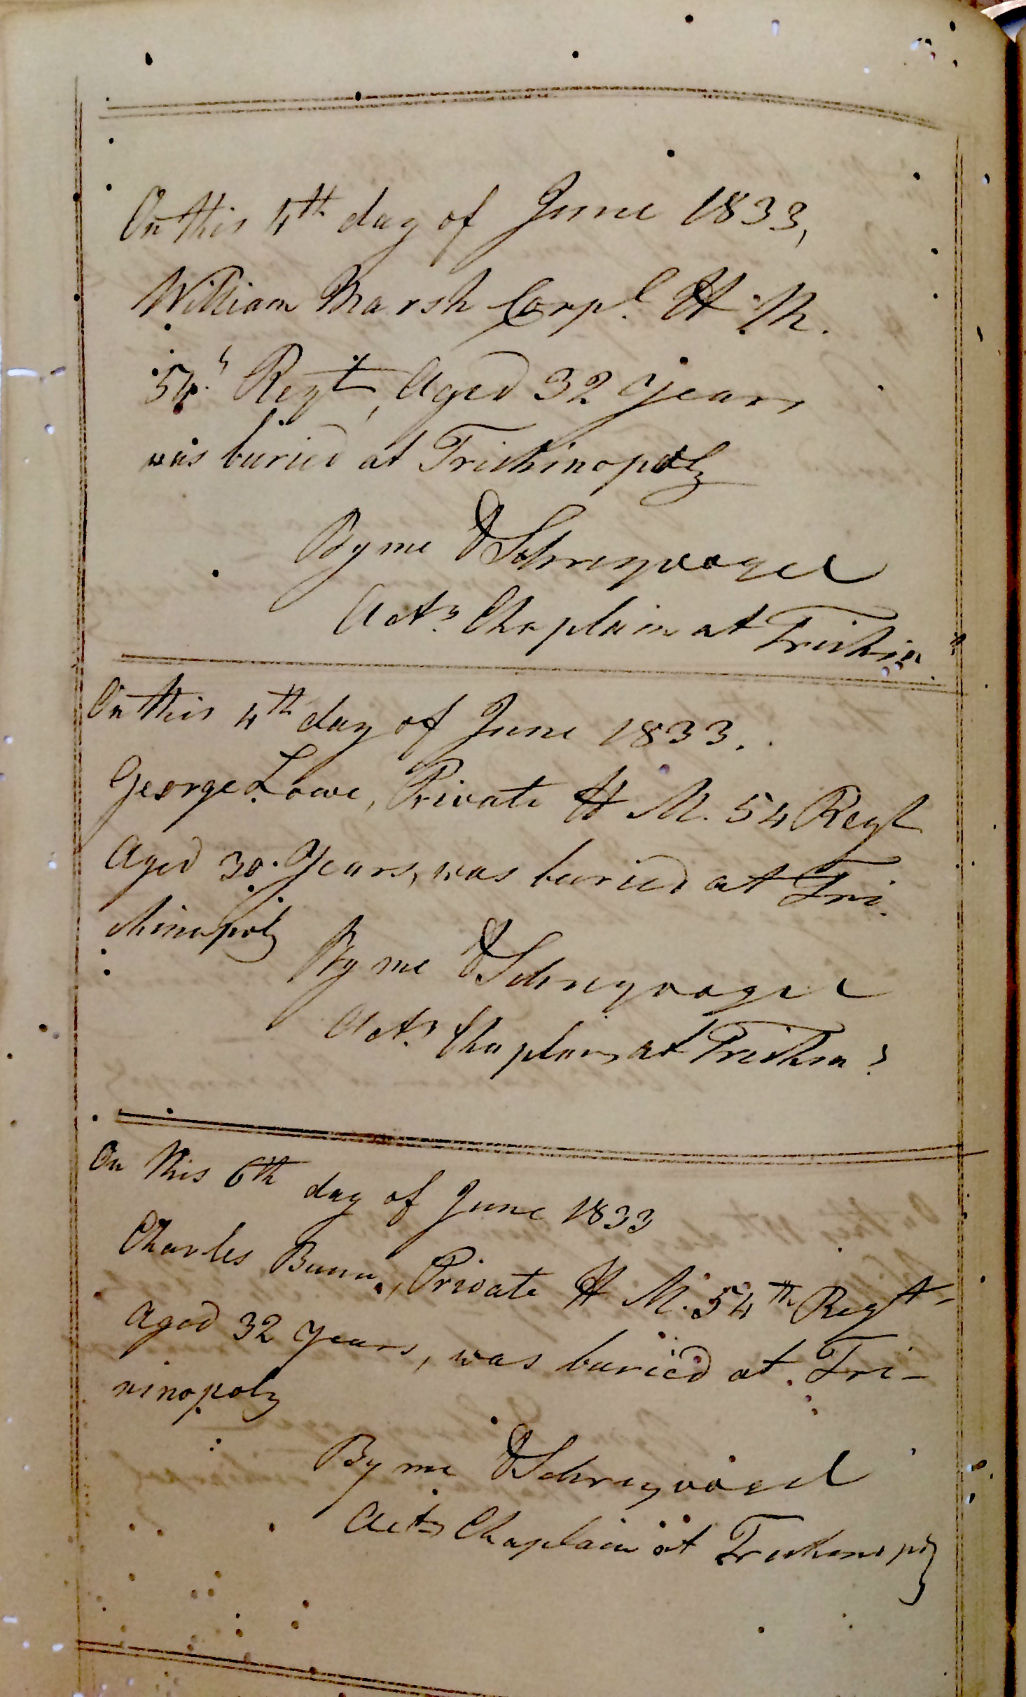 On this 4th day of June 1833,
William Marsh Corpl. H. M.
54th Regt, Aged 32 Years
was buried at Trichinopoly
By me D Schreyvogel
Actg. Chaplain at Trichin
On this 4th day of June 1833.
George Lowe, Private H M. 54 Regt
Aged 30 Years, was buried at Tri
chinopoly
By me D Schreyvogel
Actg. Chaplain at Trichin
On this 6th day of June 1833
Charles Bunn, Private H M. 54th Regt
Aged 32 Years, was buried at Tri-
ninopoly
By me D Schreyvogel
Actg Chaplain at Trichinopoly